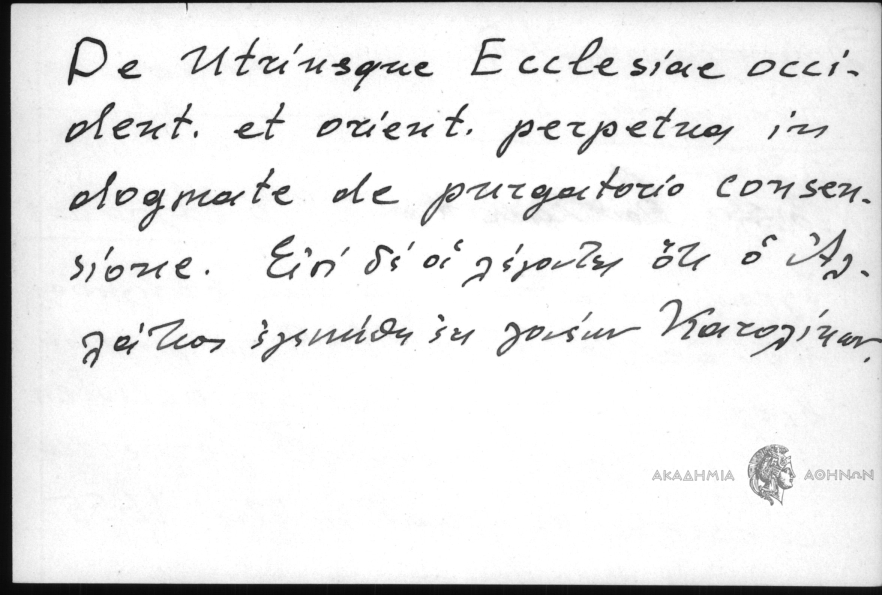 De Utriusque Ecclesiae occi-
dent. et orient. perpetua in
dogmate de purgatorio consen-
sione. Εἰσί δέ οἱ λέγοντες ὅτι ὁ Ἀλ-
λάτιος ἐγεννήθη ἐκ γονέων Καθολίκων.
ΑΚΑΔΗΜΙΑ ΑΘΗΝΩΝ